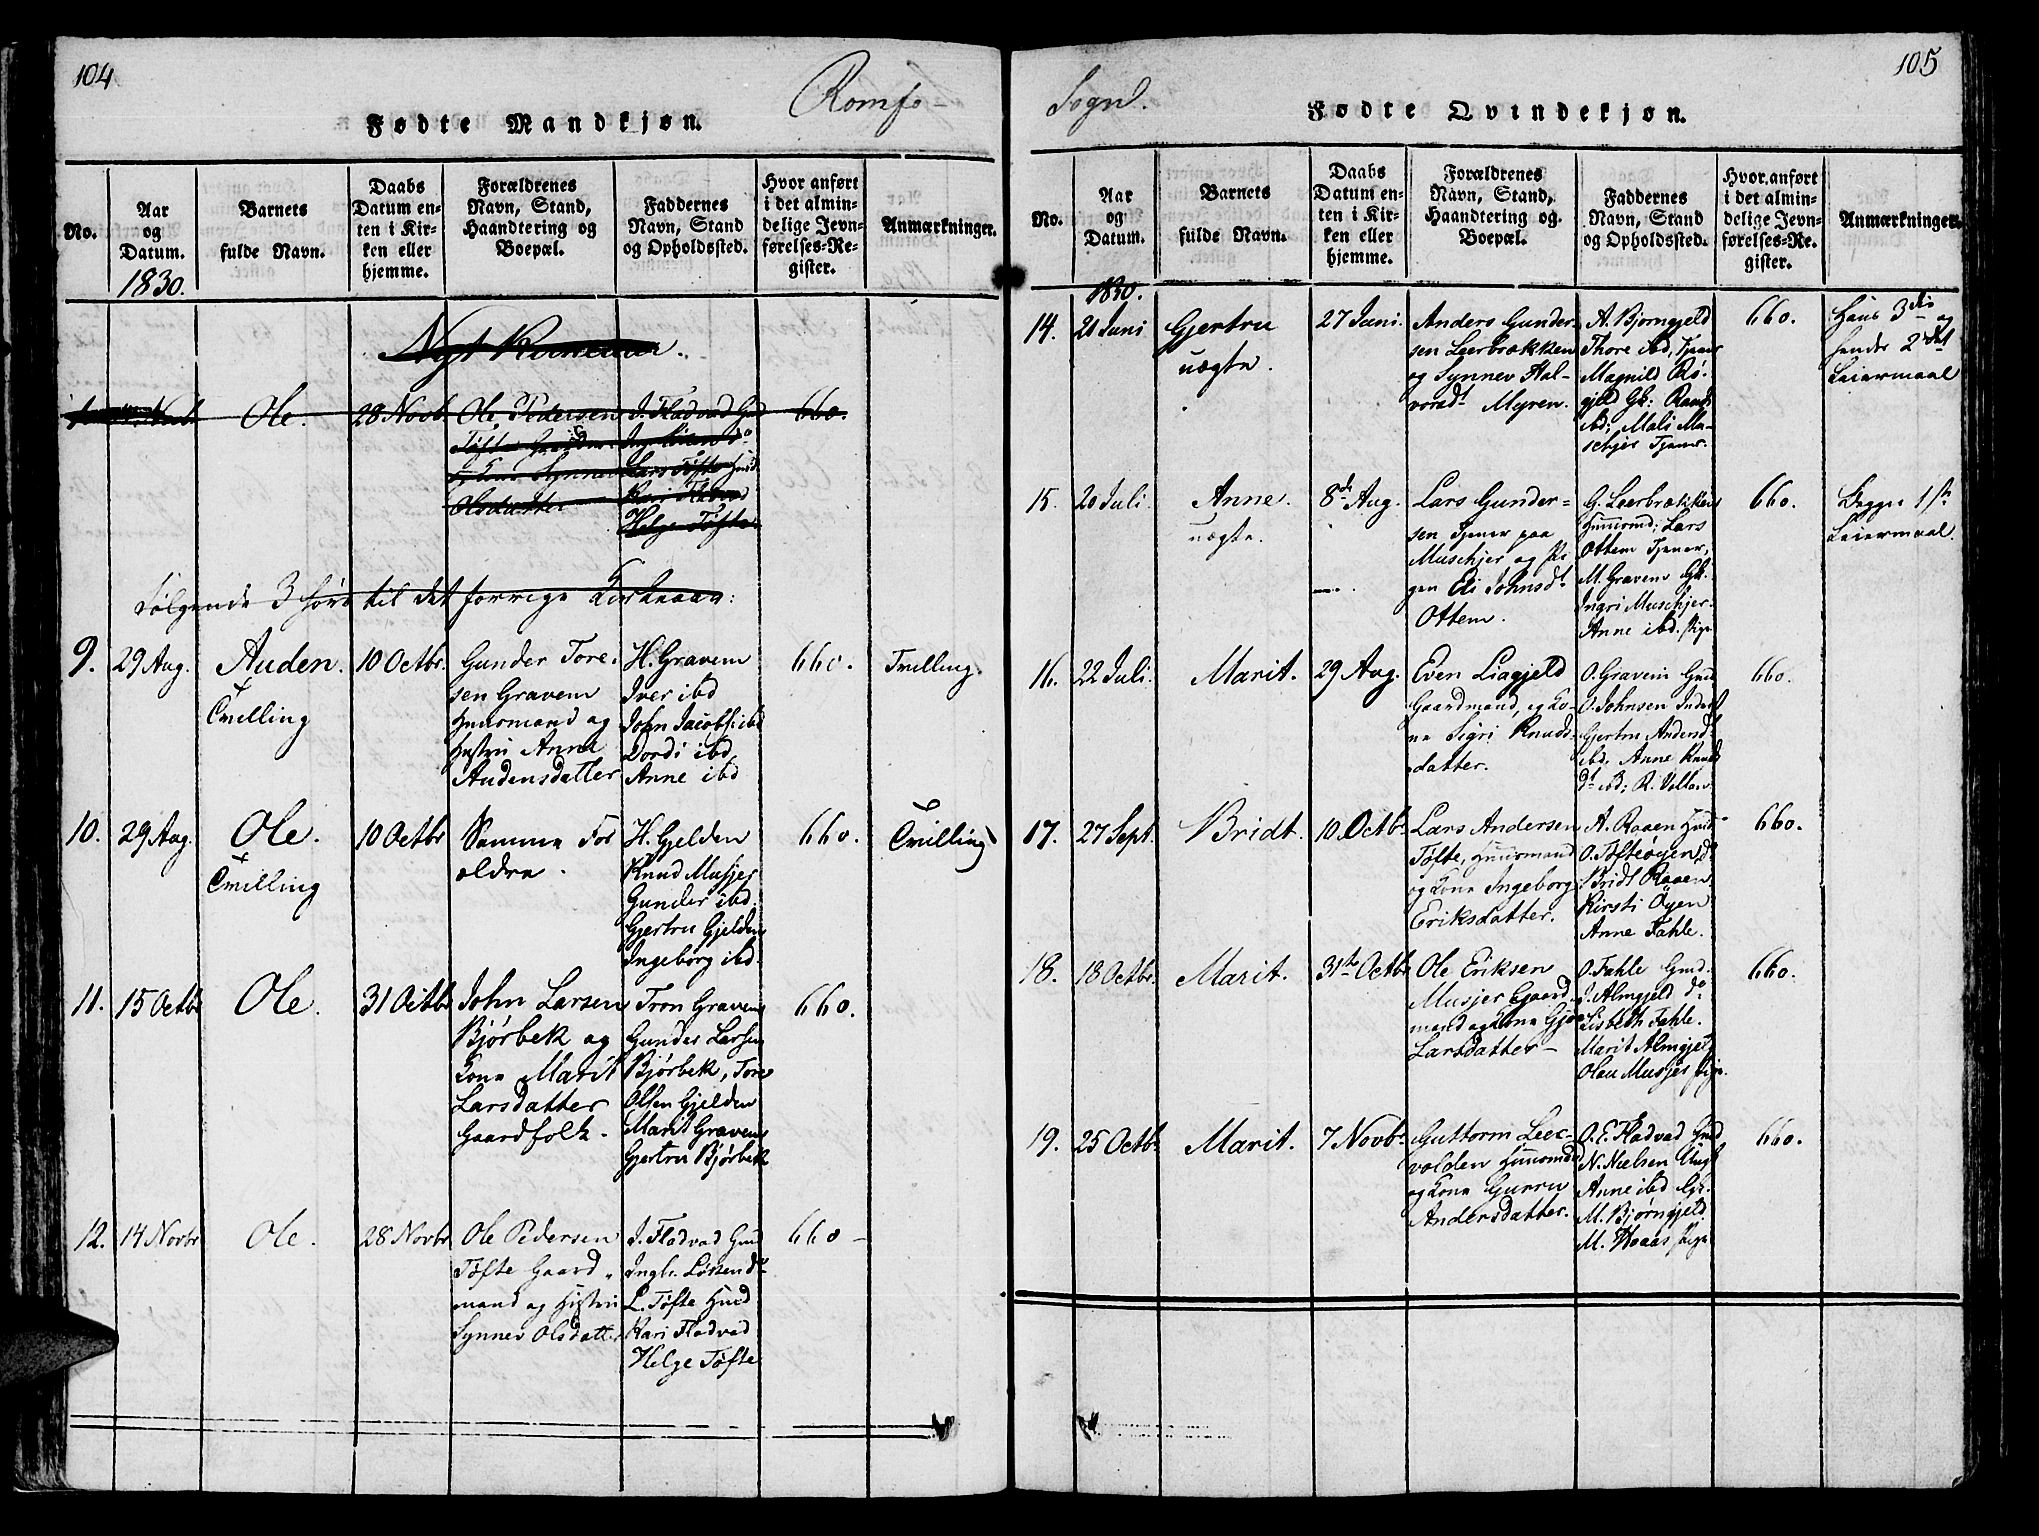 104
Romfo
Fødte Mandkjøn.
No.
Aar
og
Datum.
1830.
Barnets
fulde Navn.
Daabs
Datum en-
ten i Kir-
ken eller
hjemme.
Forældrenes
Navn, Stand,
Haandtering og
Boepæl.
Faddernes
Navn, Stand
og Opholdssted.
Hvor anført
i det almin-
delige Jevn-
førelses-Re-
gister.
Anmærkninger.
Nyt
Ole.
28 Novb
Ole Pedersen
Tøfte
Synnev
Olsdatter
J. Fladvad Gmd
Lars Tøfte Huusmd
Kari Fladvad
Helge Tøfte
660.
Følgende 3 høre til det forrige Kirkeaar:
9.
29 Aug.
Auden.
Tvilling
10 Octbr.
Gunder Tore-
sen Gravem
Huusmand og
Hustru Anne
Audensdatter
H. Gravem
Iver ibd
John Jacobs. ibd
Dordi ibd
Anne ibd
660.
Tvilling.
10.
29 Aug.
Ole.
Tvilling
10 Octbr
Samme For
ældre.
H. Gjelden
Knud Musjer
Gunder ibd.
Gjertru Gjelden
Ingeborg ibd.
660.
Tvilling
11.
15 Octbr
Ole.
31 Octbr
John Larsen
Bjørbek og
Kone Marit
Larsdatter
Gaardfolk.
Tron Gravem
Gunder Larsen
Bjørbek, Tore
Olsen Gjelden
Marit Gravem
Gjertru Bjørbek
660.
12.
14 Novbr
Ole.
28 Novbr
Ole Pedersen
Tøfte Gaard-
mand og Hustru
Synnev Olsdatter
J. Fladvad Gmd
L. Tøfte Hmd
Kari Fladvad
Helge Tøfte
660
105
Sogn.
Fødte Qvindekjøn.
No.
Aar
og
Datum.
1830.
Barnets
fulde Navn.
Daabs
Datum en-
ten i Kir-
ken eller
hjemme.
Forældrenes
Navn, Stand,
Haandtering og
Boepæl.
Faddernes
Navn, Stand
og Opholdssted.
Hvor anført
i det almin-
delige Jevn-
førelses-Re-
gister.
Anmærkninger.
14.
21 Juni
Gjertru
uægte.
27 Juni.
Anders Gunder
sen Leerbrækken
og Synnev Hal-
vorsdt Myren.
A. Bjørngjeld
Thore ibd, Tjener
Magnild Rø-
gjeld Gk: Randi
ibd; Mali Mu-
schjer Tjener.
660.
Hans 3die og
hendes 2det
Leiermaal
15.
20 Juli.
Anne.
uægte.
8de Aug.
Lars Gunder-
sen Tjener paa
Muschjer og Pi
gen Eli Johnsdt
Ottem.
G. Leerbrækken
Huusmd; Lars
Ottem Tjener,
M. Gravem Gk.
Ingri Muschjer.
Anne ibd. Pige
660.
Begges 1ste
Leiermaal.
16.
22 Juli.
Marit.
29 Aug.
Even Liagjeld
Gaardmand, og Ko-
ne Sigri Knuds-
datter.
O. Gravem Gmd
O. Johnsen Inderst
Gjertru Andersdt
ibd. Anne Knuds
dt ibd; R. Vollan
660.
17.
27 Sept.
Bridt.
10. Octbr
Lars Andersen
Tøfte, Huusmand
og Kone Ingeborg
Eriksdatter.
A. Raaen Hmd
O. Tøfteøyen do
Bridt Raaen
Kirsti Øyen
Anne Fahle.
660.
18.
18 Octbr.
Marit.
31te Octbr
Ole Eriksen
Musjer Gaard
mand og Kone
Larsdatter-
O. Fahle Gmd.
J. Almgjeld do
Lisbeth Fahle.
Marit Almgjeld
Olau Musjer Pige.
660.
19.
25 Octbr
Marit.
7 Novbr
Guttorm Leer-
volden Huusmand
og Kone Gurru
Andersdatter.
O. E. Fladvad Gmd
N. Nielsen
Anne ibd Gk.
M. Bjørngjeld
M. Hoaas Pige
660.